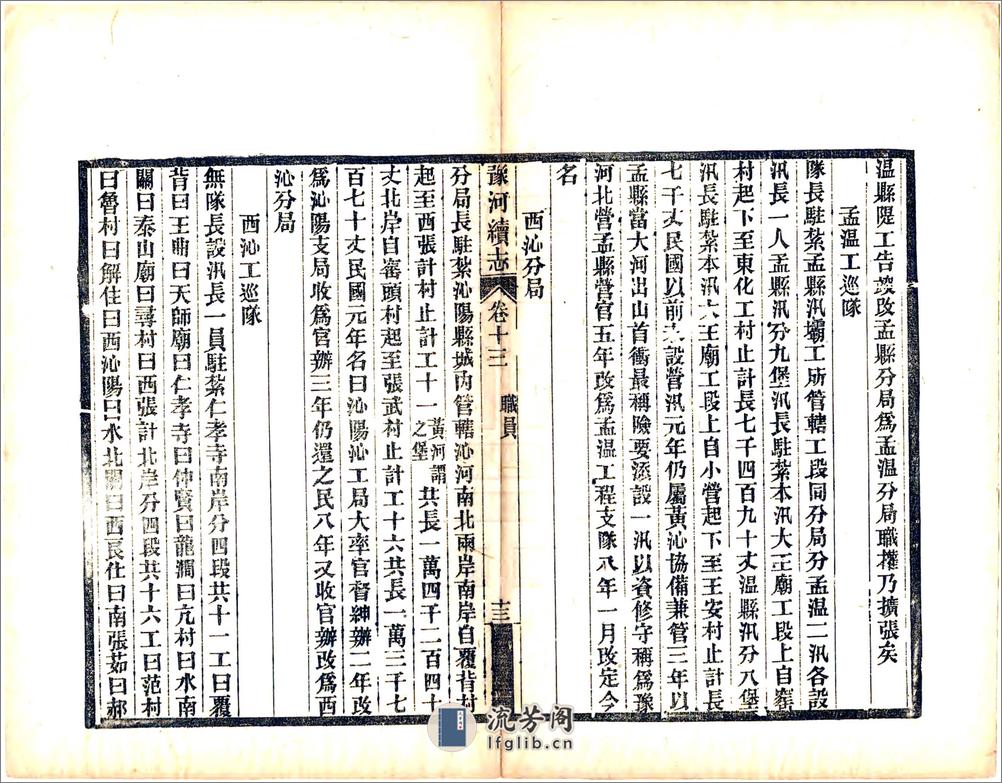 温縣隄工告竣改孟縣分局為孟温分局職權乃擴張矣
孟温工巡隊
隊長駐紮孟縣汛壩工所管轄工段同分局分孟温二汛各設
汛長一人孟縣汛分九堡汛長駐紮本汛大王廟工段上自
村起下至東化工村止計長七千四百九十丈温縣汛分八堡
汛長駐紮本汛大王廟工段上自小營起下至王安村止計長
七千丈民國以前未設營汛元年仍屬黃沁協備兼管三年以
孟縣當大河出山首衝最稱險要添設一汛以資修守稱爲豫
河北營孟縣營官五年改爲孟温工程支隊八年一月改定今
名
西沁分局
豫河續志 卷十三 職員 十三
分局長駐紮沁陽縣城內管轄沁河南北兩岸南岸自覆背村
起至西張計村止計工十一黃河謂之堡共長一萬四千二百四十
丈北岸自窰頭村起至張武村止計工十六共長一萬三千七
百七十丈民國元年名曰沁陽沁工局大率官督紳辦二年改
爲沁陽支局收爲官辦三年仍還之民八年又收官辦改爲西
沁分局
西沁工巡隊
無隊長設汛長一員駐紮仁孝寺南岸分四段共十一工曰覆
背曰王曲曰天師廟曰仁孝寺曰仲賢曰龍澗曰亢村曰水南
關曰泰山廟曰尋村曰西張計北岸分四段共十六工曰范村
曰魯村曰解住曰西沁陽曰水北關曰西長仕曰南張茹曰郝
流芳閣
lfglib.cn